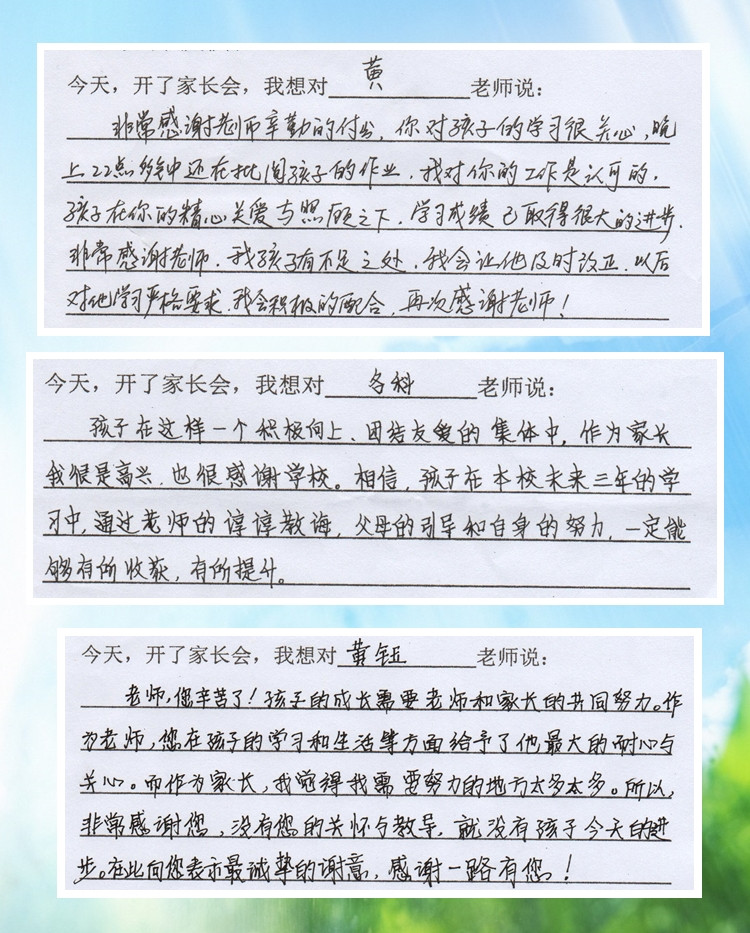 今天，开了家长会，我想对 黄 老师说：
非常感谢老师辛勤的付出，你对孩子的学习很关心，晚
上22点多钟还在批阅孩子的作业，我对你的工作是认可的，
孩子在你的精心关爱与照顾之下，学习成绩已取得很大的进步，
非常感谢老师，我孩子有不足之处，我会让他及时改正，以后
对他学习严格要求，我会积极的配合，再次感谢老师！
今天，开了家长会，我想对 各科 老师说：
孩子在这样一个积极向上、团结友爱的集体中，作为家长
我很是高兴，也很感谢学校。相信，孩子在本校未来三年的学
习中，通过老师的谆谆教诲，父母的引导和自身的努力，一定能
够有所收获，有所提升。
今天，开了家长会，我想对 黄钰 老师说：
老师，您辛苦了！孩子的成长需要老师和家长的共同努力。作
为老师，您在孩子的学习和生活等方面给予了他最大的耐心与
关心。而作为家长，我觉得我需要努力的地方太多太多。所以，
非常感谢您，没有您的关怀与教导，就没有孩子今天的进
步。在此向您表示最诚挚的谢意，感谢一路有您！